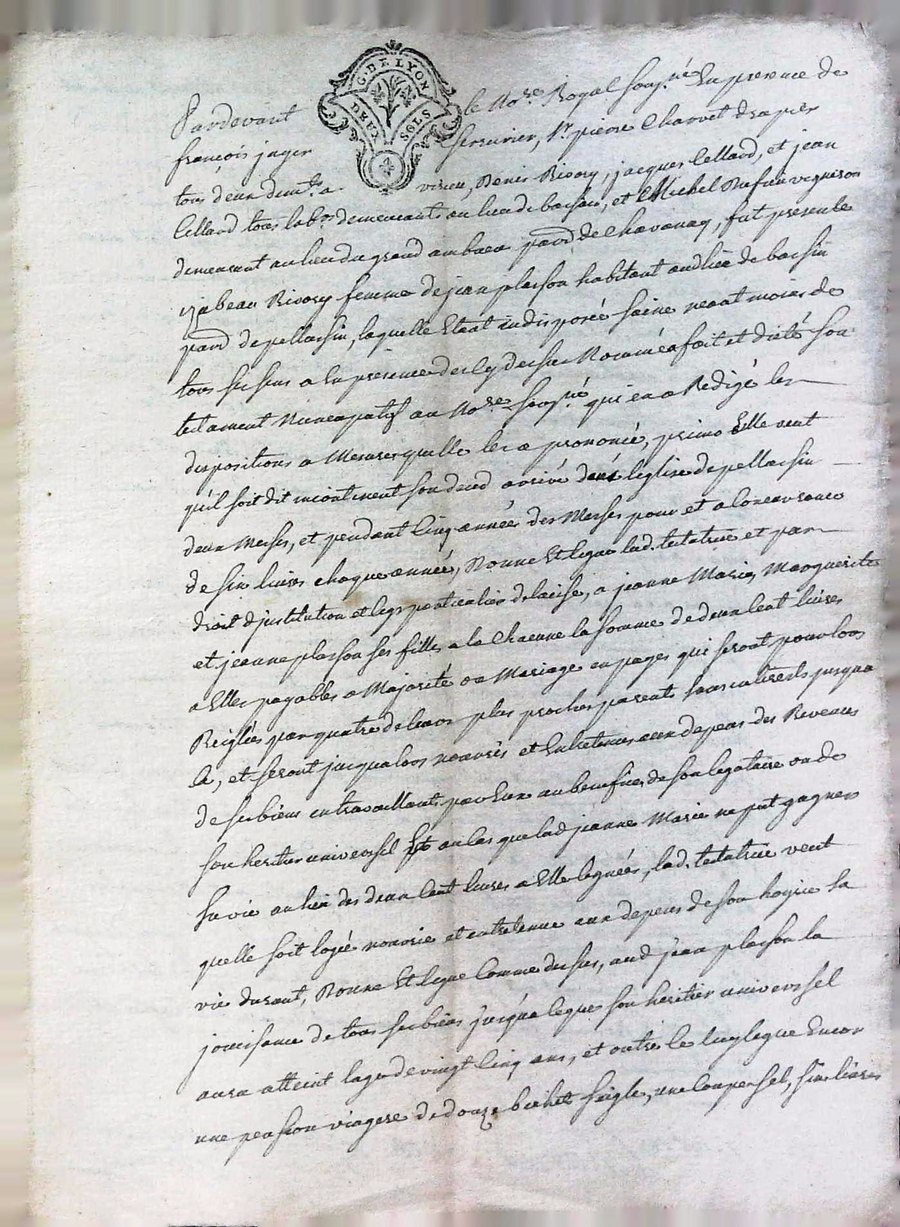 G. DE LYON
DEUX SOLS
Pardevant le No.re Royal souss.né En presence de
françois jager serrurier, Sr. pierre Charvet drapier
tous deux dem.ts a virieu, Denis Rivory, jacques Cellard, et jean
Cellard tous lab.rs demeurants au lieu de bassin, et Michel Dufour vigneron
demeurant au lieu du grand embuen parr.d de Chavanay, fut presente
yzabeau Rivory femme de jean plasson habitant audlieu de bassin
parr.d de pellassin, laquelle Etant indisposée saine neant moins de
tous ses sens a En presence des cy dessus Nommés fait et dicté son
testament Nuncupatif au No.re souss.né qui en a Redigé les
dispositions a Mesure quelle les a prononcé, primo Elle veut
qu'il soit dit incontinent son deced arrivé dans leglise de pellassin
deux Messes, et pendant cinq année des Messes pour et a concurrence
de six livres chaque année, Donne Et legue lad. testatrice et par
droit djnstitution et legs particulier delaisse, a jeanne Marie, Marguerite
et jeanne plasson ses filles a la Chacune la somme de deux Cent livres
a Elles payables a Majorité ou Mariage en pages qui seront pour lors
Reiglés par quatre de leurs plus proches parents sans interests jusqua
la, et seront jusqualors nourris et Entretenus aux depens des Revenus
de ses biens en travaillant par Eux au benefice de son legataire ou de
son heritier universel Et au cas que lad jeanne Marie ne put gagner
sa vie au lieu des deux Cent livres a Elle leguées, lad. testatrice veut
quelle soit logée nourrie et entretenue aux depens de son hoyrie sa
vie durant, Donne Et legue Comme dessus, aud jean plasson la
jouissance de tous ses biens jusqua ceque son heritier universsel
aura atteint lage de vingt Cinq ans, et outre ce luy legue Encor
une pension viagere de douze bichet seigle, une coupe sel, six livres